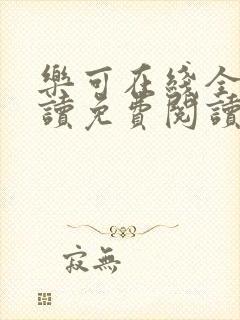 樂可在线全
讀免費閱讀
寂無